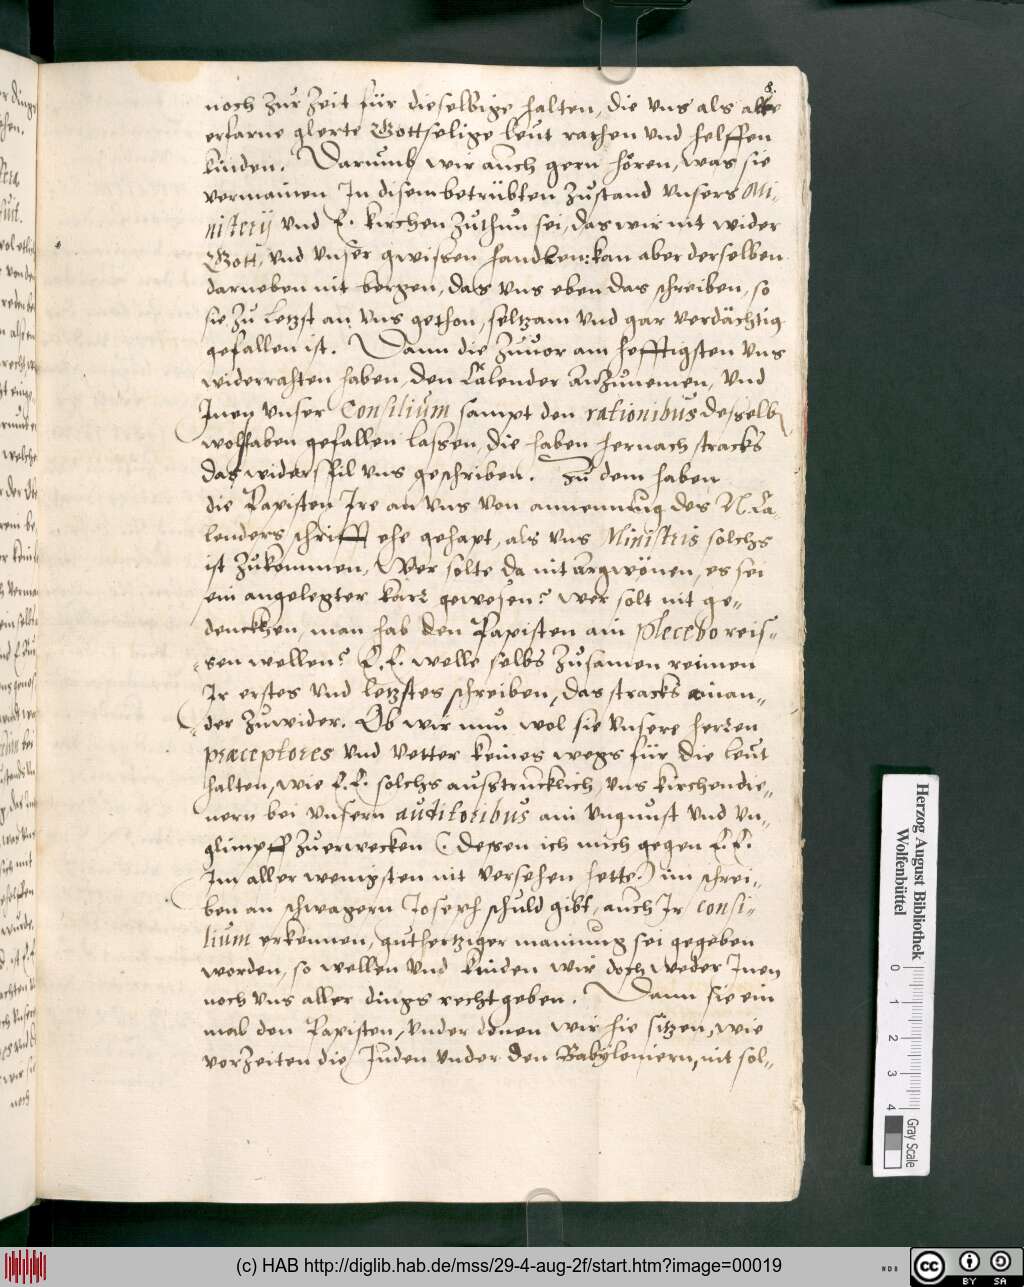 8.
noch zur zeit für dieselbige halten, die vns als alte
erfarne glerte Gottselige leut rathen vnd helffen
kinden. Darumb wir auch gern hören, was sie
vermainen In disem betrübten zustand vnsers Mi-
nisterij vnd E. kirchen zuthun sei, das wir nit wider
Gott, vnd vnser gwissen handlen: kan aber derselben
darneben nit bergen, das vns eben das schreiben, so
sie zu letzst an vns gethon, seltzam vnd gar verdächtig
gefallen ist. Dann die zuuor am hefftigsten vns
widerrahten haben, den Calender anzunemen, vnd
Inen vnser Consilium sampt den rationibus desselb
wolhaben gefallen lassen, die haben hernach stracks
das widerspil vns geschriben. Zu dem haben
die Papisten Ire an vns von annemung des N. Ca-
lenders schrifft ehe gehapt, als vns Ministris solchs
ist zukommen, Wer solte da nit argwönen, es sei
ein angelegter kart gewesen? wer solt nit ge-
denckhen, man hab den Papisten ain plecebo reis-
sen wellen? E. E. welle selbs zusamen reimen
Ir erstes vnd letzstes schreiben, das stracks ainan-
der zuwider. Ob wir nun wol sie vnsere herren
præceptores vnd vetter keines wegs für die leut
halten, wie E. E. solchs ausstrucklich, vns kirchendie-
nern bei vnsern auditoribus ain vngunst vnd vn-
glimpff zuerwecken (: dessen ich mich gegen E. E.
Im aller wenigsten nit versehen hette:) im schrei-
ben an schwagern Joseph schuld gibt, auch Ir consi-
lium erkennen, guthertziger mainung sei gegeben
worden, so wellen vnd kinden wir doch weder Inen
noch vns aller dings recht geben. Dann sie ein
mal den Papisten, vnder denen wir hie sitzen, wie
vorzeiten die Juden vnder den Babyloniern, nit sol-
Herzog August Bibliothek
Wolfenbüttel
0 1 2 3 4
Gray Scale
(c) HAB http://diglib.hab.de/mss/29-4-aug-2f/start.htm?image=00019
cc BY SA